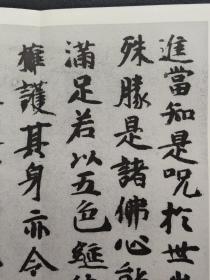 進當知是呪於世
殊勝是諸佛心
滿足若以五色綖
擁護其身亦令